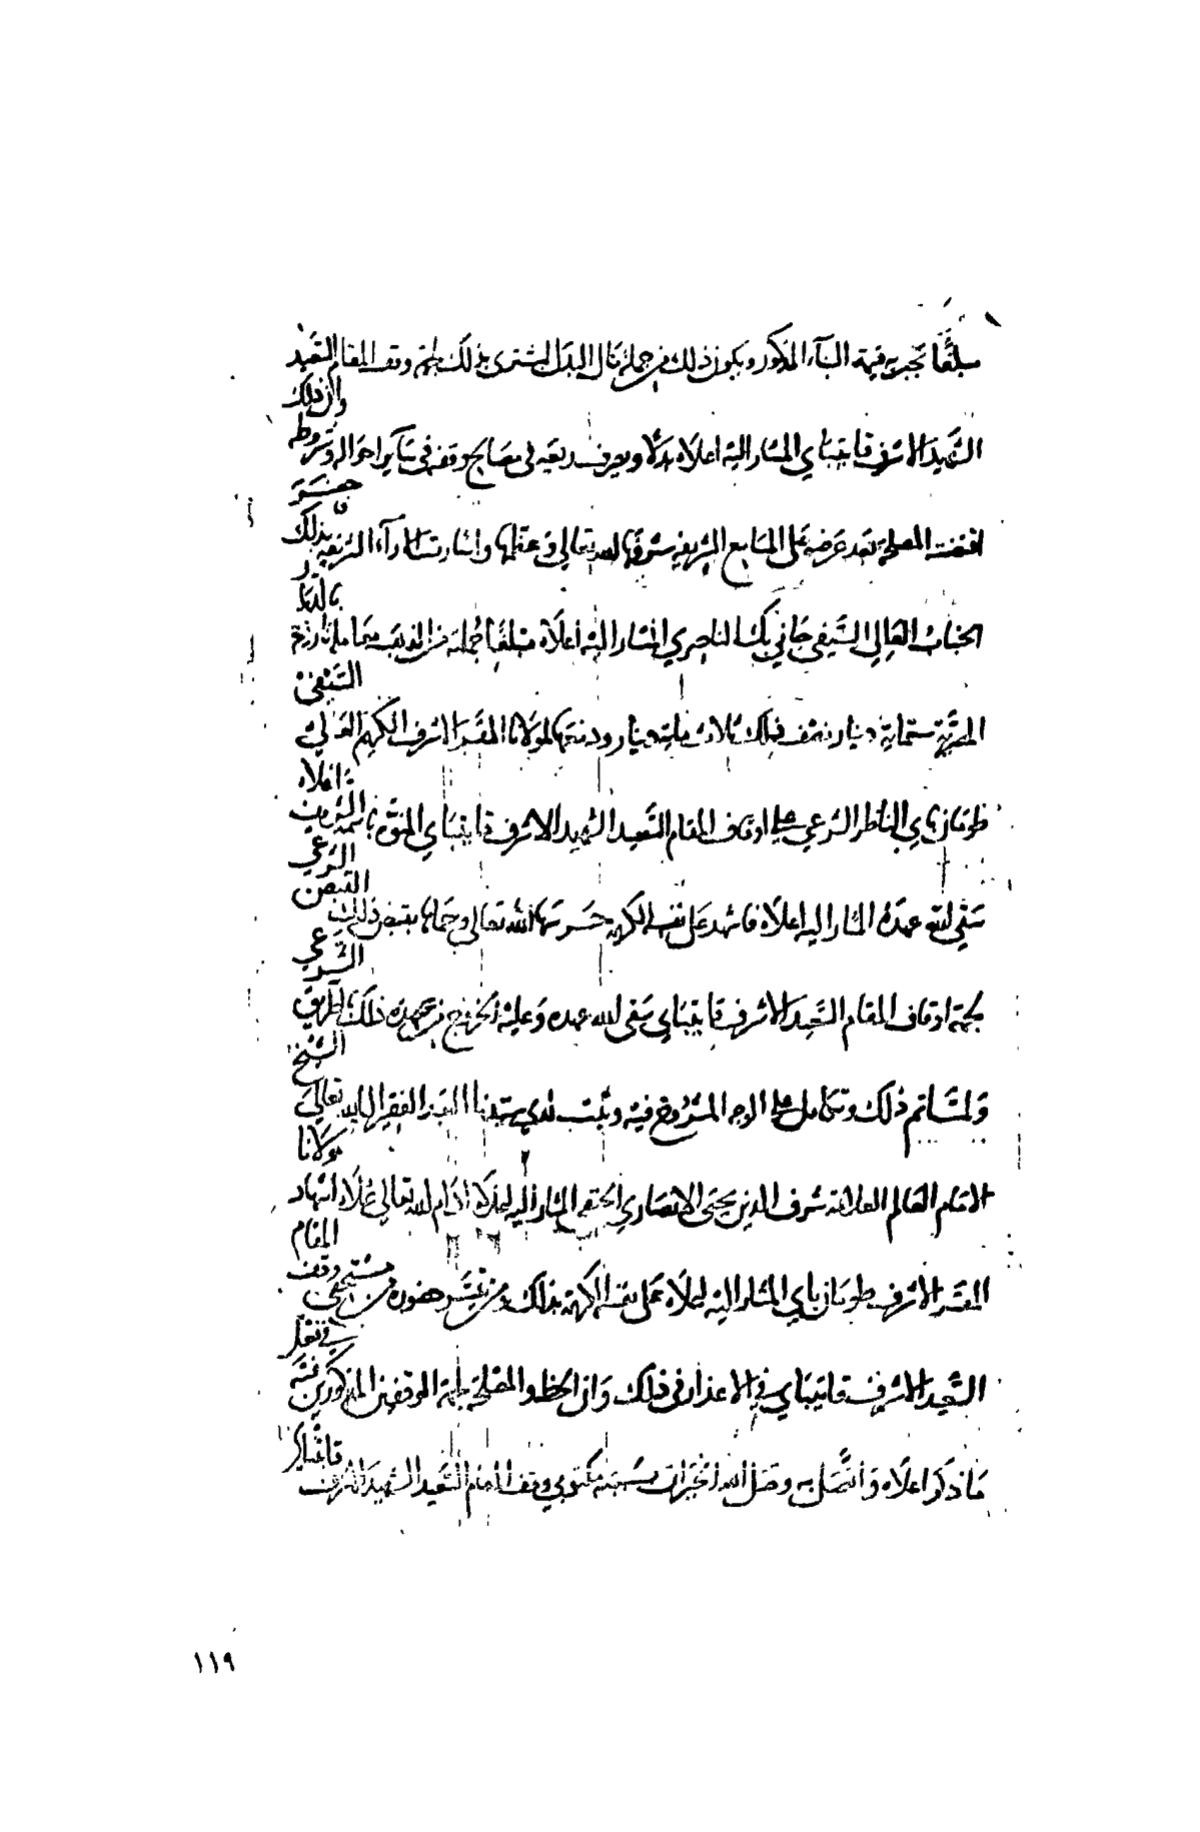 مبلغا تجبر به قيمة البناء المذكور ويكون ذلك من جملة مال البدل المشترى بذلك لجهة وقف المقام السعيد
الشهيد الاشرف قايتباي المشار اليه اعلاه بدلا ويصرف ريعه في مصالح وقفه في سائر احواله وشروطه وان ذلك
اقتضت المصلحة بعد عرضه على المسامع الشريفة شرفها الله تعالى وعظمها واشارت الآراء الشريفة بذلك
الجناب العالي السيفي جاني بك الناصري المشار اليه اعلاه مبلغا جملته من الذهب معاملة تاريخه بالديار
المصرية ستماية دينار نصف ذلك ثلاث ماية دينار ودفعها لمولانا المقر الاشرف الكريم العالي السيفي
طومان باي الناظر الشرعي على اوقاف المقام السعيد الشهيد الاشرف قايتباي المنوه باسمه الشريف اعلاه
سقى الله عهده المشار اليه اعلاه فاشهد على نفسه الكريمة حرسها الله تعالى وحماها بقبض ذلك القبض الشرعي
لجهة اوقاف المقام السعيد الاشرف قايتباي سقى الله عهده وعليه الخروج من عهدة ذلك بالطريق الشرعي
ولما تم ذلك وتكامل على الوجه المشروح فيه وثبت لدى سيدنا العبد الفقير الى الله تعالى الشيخ
الامام العالم العلامة شرف الدين يحيى الانصاري الحنفي المشار اليه اعلاه ادام الله تعالى علاه اشهاد مولانا
المقر الاشرف طومان باي المشار اليه اعلاه على نفسه الكريمة بذلك ومن تيسر حضوره من مستحقي وقف المقام
السعيد الاشرف قايتباي في الاعذار في ذلك وان الحظ والمصلحة لجهة الوقفين المذكورين فيه في فعل
ما ذكر اعلاه واتصل به وصل الله الخيرات بسببه مكتوبي وقف المقام السعيد الشهيد الاشرف قايتباي
١١٩